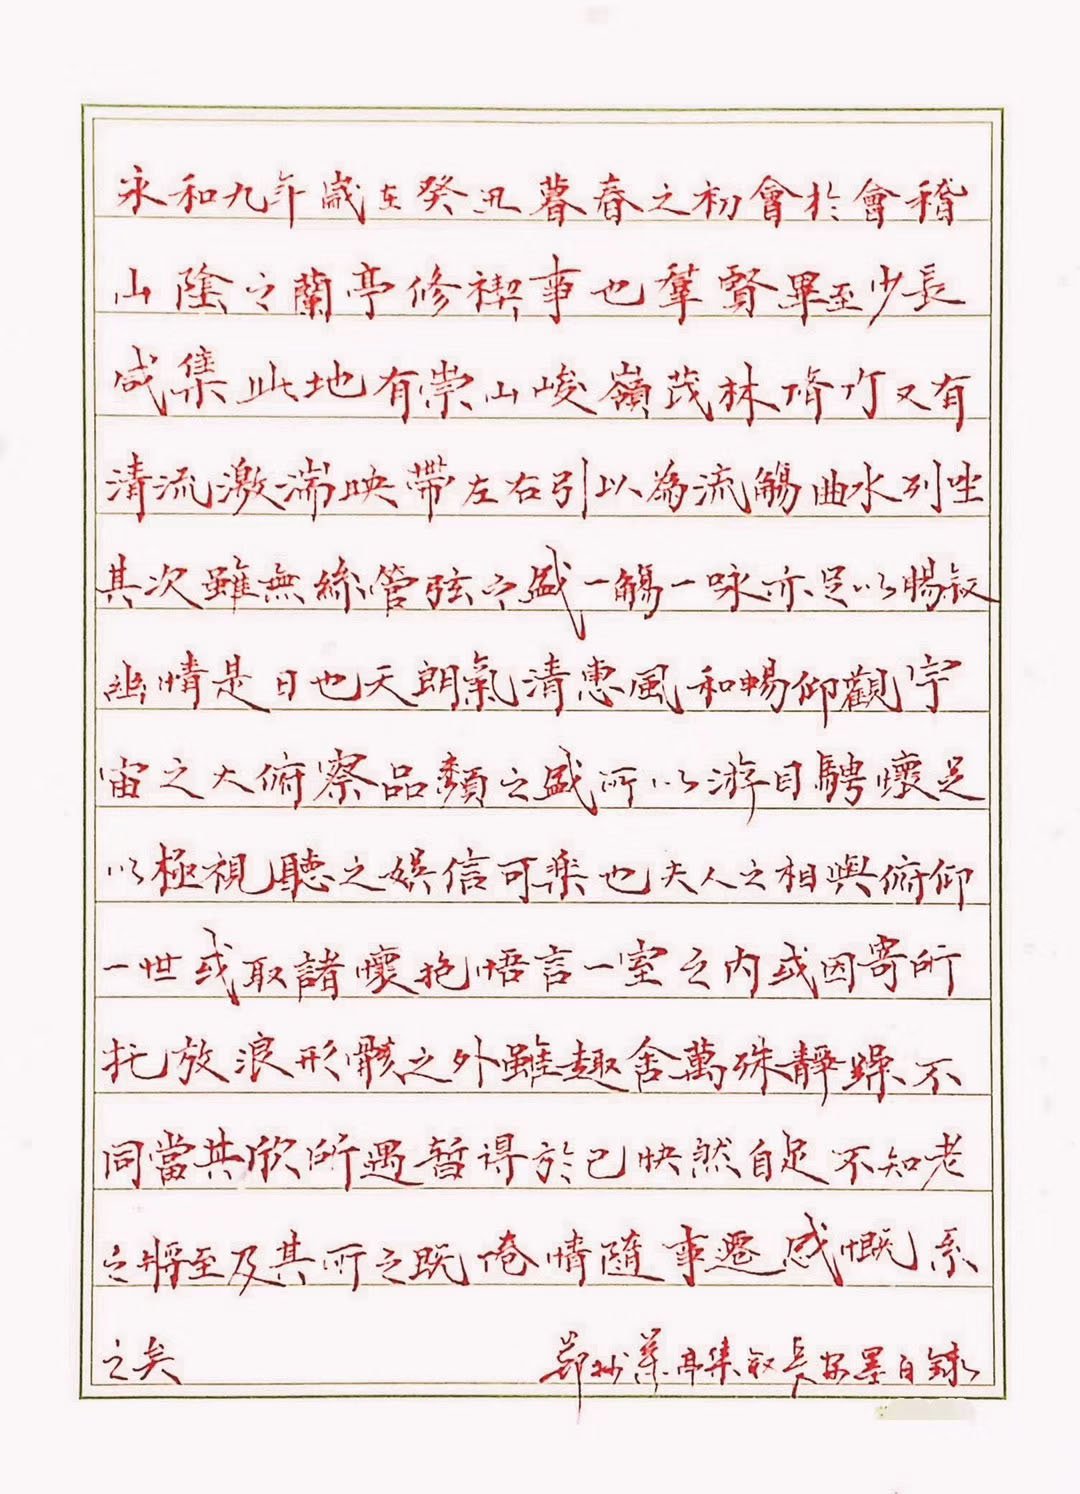 永和九年歲在癸丑暮春之初會於會稽
山陰之蘭亭修禊事也羣賢畢至少長
咸集此地有崇山峻嶺茂林脩竹又有
清流激湍映帶左右引以為流觴曲水列坐
其次雖無絲管弦之盛一觴一咏亦足以暢叙
幽情是日也天朗氣清惠風和暢仰觀宇
宙之大俯察品類之盛所以游目騁懷足
以極視聽之娛信可樂也夫人之相與俯仰
一世或取諸懷抱悟言一室之內或因寄所
托放浪形骸之外雖趣舍萬殊靜躁不
同當其欣所遇暫得於己快然自足不知老
之將至及其所之既倦情隨事遷感慨系
之矣
節抄蘭亭集叙長安墨白錄